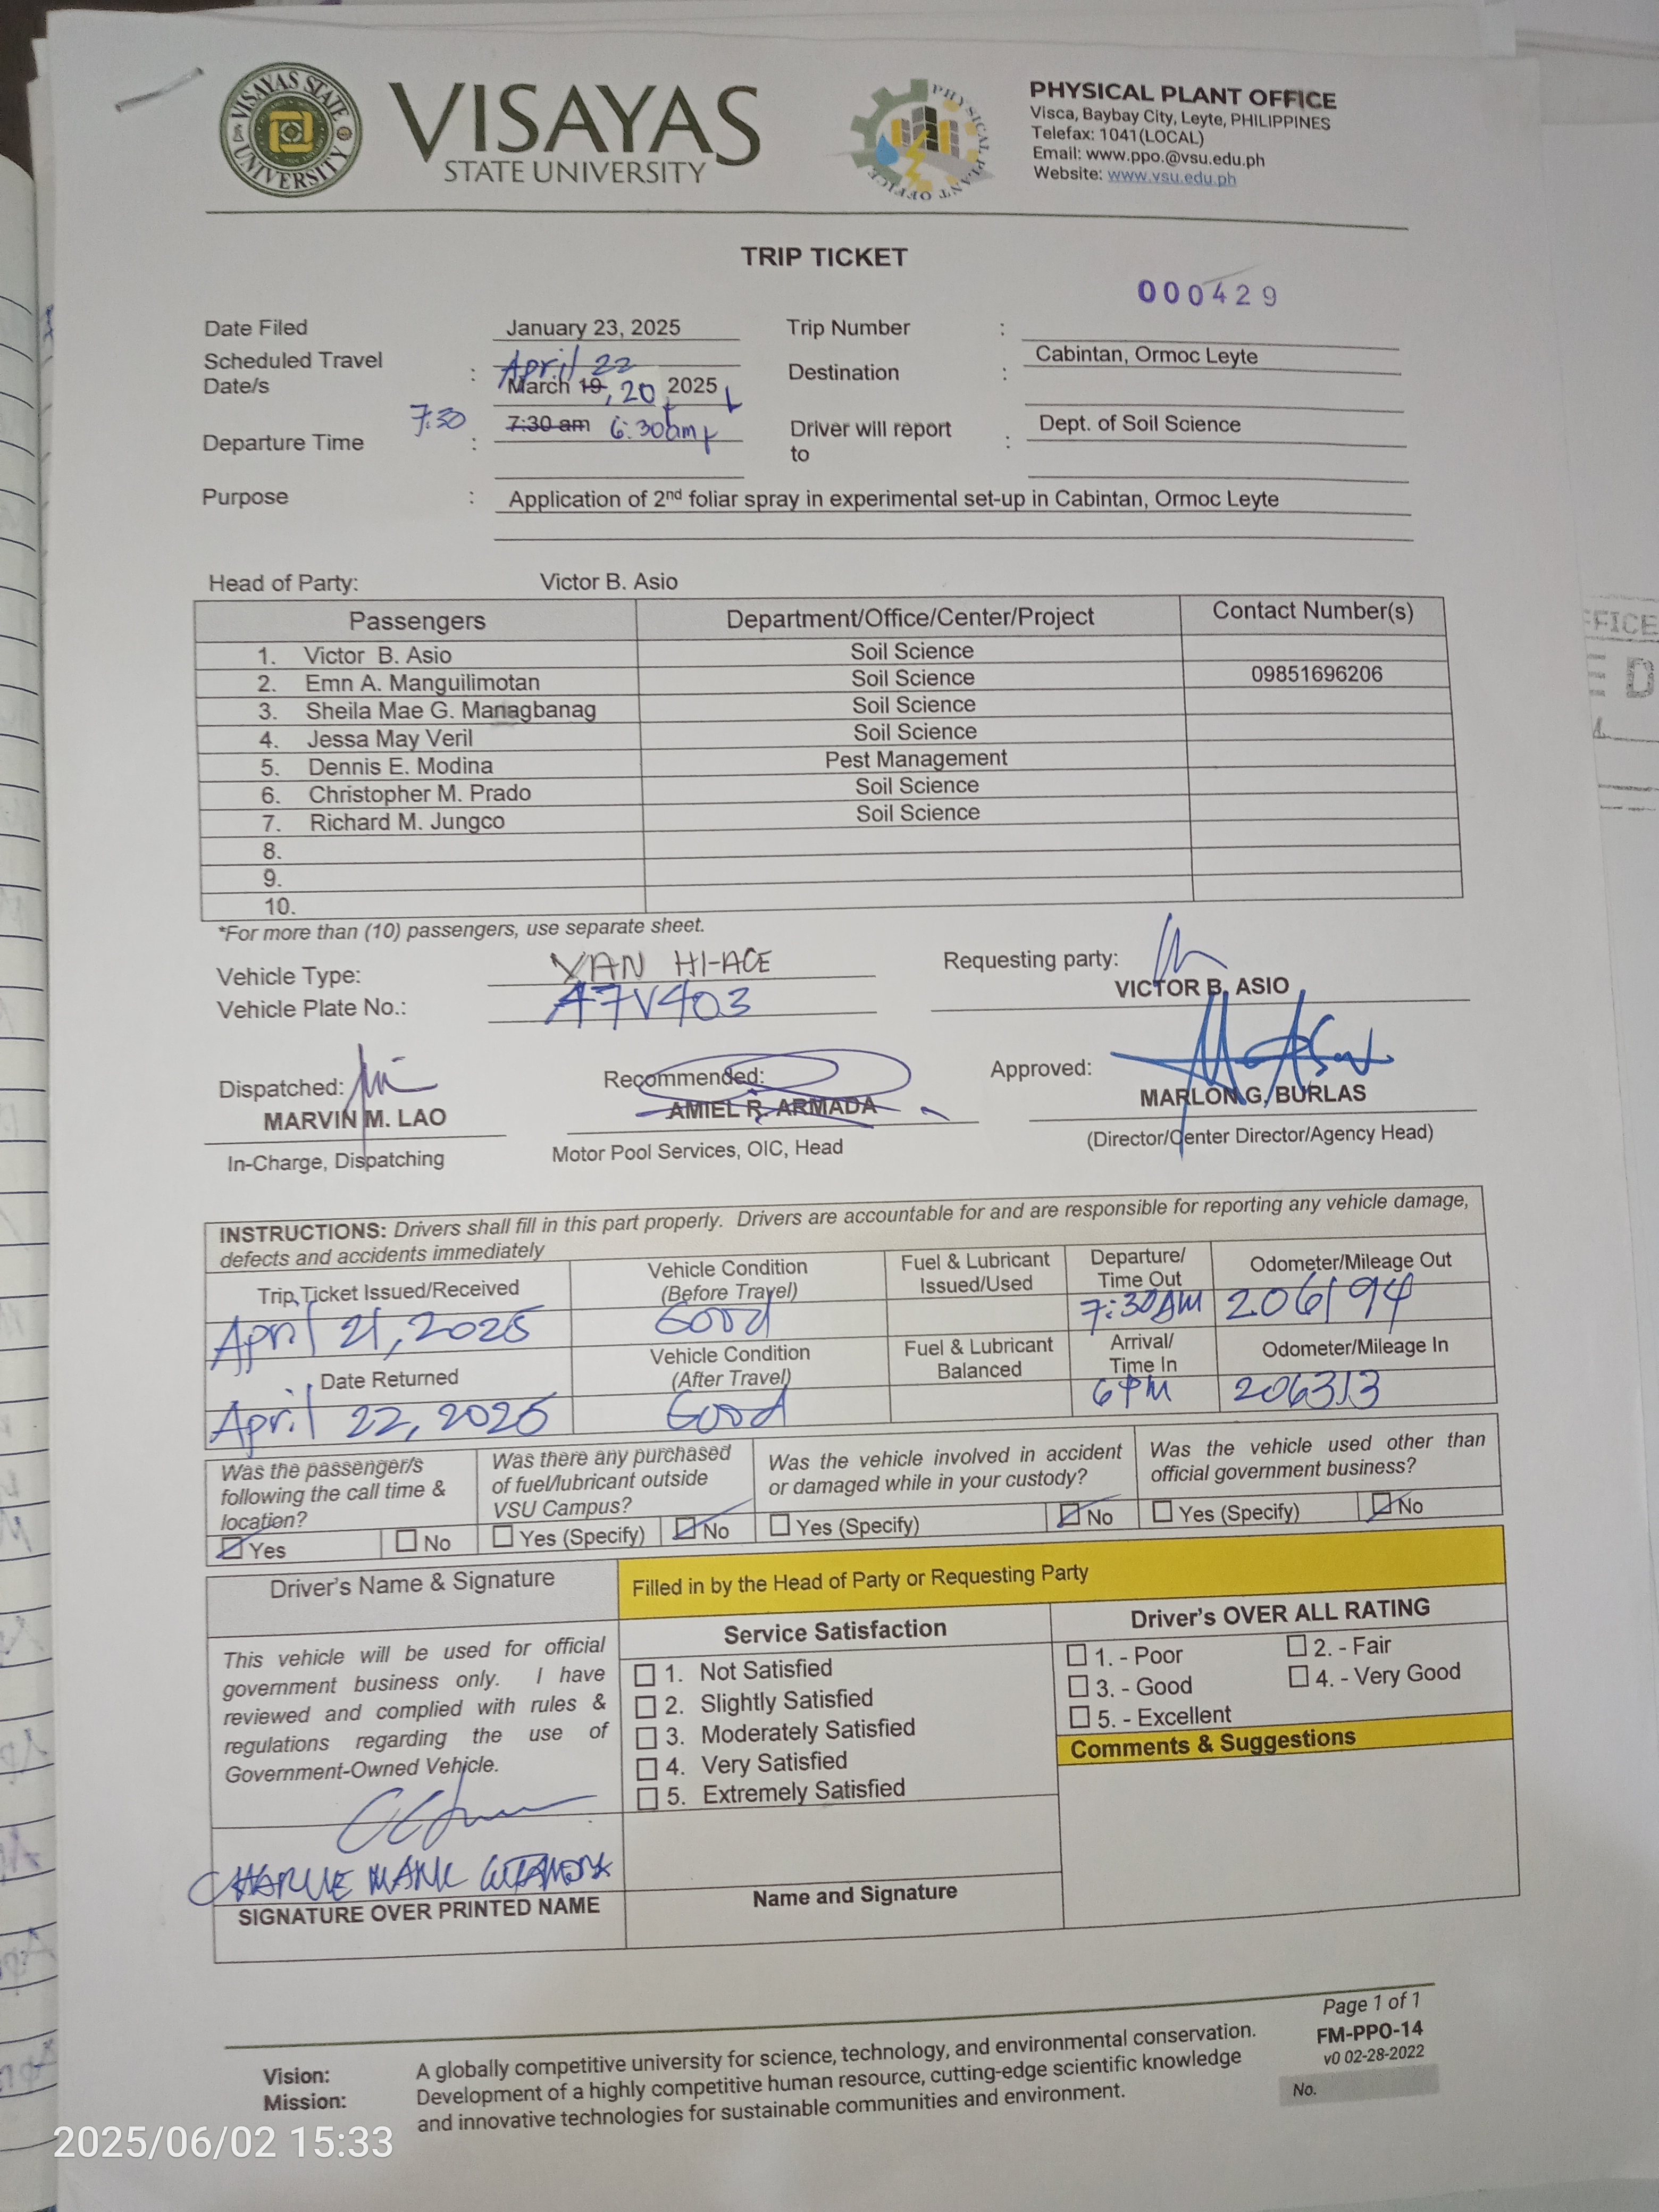 VISAYAS STATE UNIVERSITY
VISAYAS
STATE UNIVERSITY
PHYSICAL PLANT OFFICE
PHYSICAL PLANT OFFICE
Visca, Baybay City, Leyte, PHILIPPINES
Telefax: 1041(LOCAL)
Email: www.ppo.@vsu.edu.ph
Website: www.vsu.edu.ph
TRIP TICKET
000429
Date Filed January 23, 2025 Trip Number :
Scheduled Travel Date/s : April 22 March 19, 20 2025 Destination : Cabintan, Ormoc Leyte
Departure Time : 7:30 7:30 am 6:30am Driver will report to : Dept. of Soil Science
Purpose : Application of 2nd foliar spray in experimental set-up in Cabintan, Ormoc Leyte
Head of Party: Victor B. Asio
Passengers Department/Office/Center/Project Contact Number(s)
1. Victor B. Asio Soil Science
2. Emn A. Manguilimotan Soil Science 09851696206
3. Sheila Mae G. Managbanag Soil Science
4. Jessa May Veril Soil Science
5. Dennis E. Modina Pest Management
6. Christopher M. Prado Soil Science
7. Richard M. Jungco Soil Science
8.
9.
10.
*For more than (10) passengers, use separate sheet.
Vehicle Type: VAN HI-ACE Requesting party:
Vehicle Plate No.: A7V403 VICTOR B. ASIO
Dispatched: Recommended: Approved:
MARVIN M. LAO AMIEL R. ARMADA MARLON G. BURLAS
In-Charge, Dispatching Motor Pool Services, OIC, Head (Director/Center Director/Agency Head)
INSTRUCTIONS: Drivers shall fill in this part properly. Drivers are accountable for and are responsible for reporting any vehicle damage,
defects and accidents immediately
Trip Ticket Issued/Received Vehicle Condition (Before Travel) Fuel & Lubricant Issued/Used Departure/ Time Out Odometer/Mileage Out
April 21, 2025 Good 7:30AM 206194
Date Returned Vehicle Condition (After Travel) Fuel & Lubricant Balanced Arrival/ Time In Odometer/Mileage In
April 22, 2025 Good 6PM 206313
Was the passenger/s following the call time & location?
Yes No
Was there any purchased of fuel/lubricant outside VSU Campus?
Yes (Specify) No
Was the vehicle involved in accident or damaged while in your custody?
Yes (Specify) No
Was the vehicle used other than official government business?
Yes (Specify) No
Driver's Name & Signature
Filled in by the Head of Party or Requesting Party
This vehicle will be used for official
government business only. I have
reviewed and complied with rules &
regulations regarding the use of
Government-Owned Vehicle.
CHARLIE MARK
SIGNATURE OVER PRINTED NAME
Service Satisfaction
1. Not Satisfied
2. Slightly Satisfied
3. Moderately Satisfied
4. Very Satisfied
5. Extremely Satisfied
Name and Signature
Driver's OVER ALL RATING
1. - Poor 2. - Fair
3. - Good 4. - Very Good
5. - Excellent
Comments & Suggestions
Page 1 of 1
FM-PPO-14
v0 02-28-2022
No.
Vision: A globally competitive university for science, technology, and environmental conservation.
Mission: Development of a highly competitive human resource, cutting-edge scientific knowledge
and innovative technologies for sustainable communities and environment.
2025/06/02 15:33